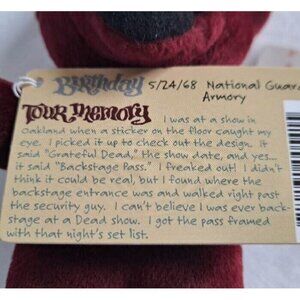 Birthday 5/24/68 National Guard
Armory
Tour Memory I was at a show in
Oakland when a sticker on the floor caught my
eye. I picked it up to check out the design. It
said "Grateful Dead," the show date, and yes...
it said "Backstage Pass." I freaked out! I didn't
think it could be real, but I found where the
backstage entrance was and walked right past
the security guy. I can't believe I was ever back-
stage at a Dead show. I got the pass framed
with that night's set list.